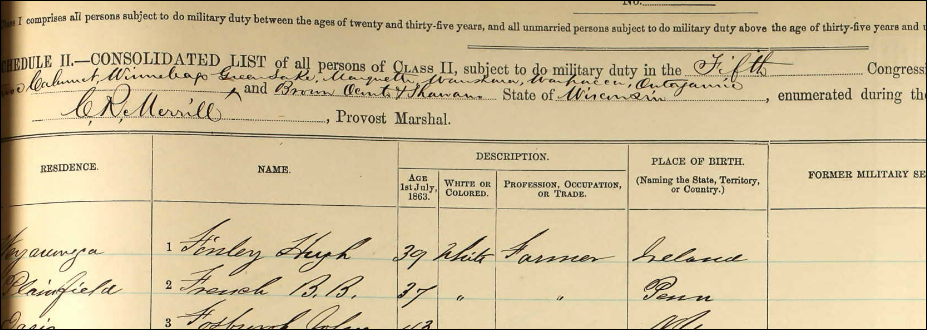 No.
Class I comprises all persons subject to do military duty between the ages of twenty and thirty-five years, and all unmarried persons subject to do military duty above the age of thirty-five years and u
CHEDULE II.—CONSOLIDATED LIST of all persons of CLASS II, subject to do military duty in the Fifth Congressi
Calumet, Winnebago Green Lake, Marquette, Waushara, Waupacca, Outagamie
and Brown Oconto & Shawano State of Wisconsin, enumerated during the
C. R. Merrill, Provost Marshal.
RESIDENCE. NAME. DESCRIPTION. PLACE OF BIRTH. (Naming the State, Territory, or Country.) FORMER MILITARY SE
AGE 1st July, 1863. WHITE OR COLORED. PROFESSION, OCCUPATION, OR TRADE.
Weyauwega 1 Finley Hugh 39 White Farmer Ireland
Plainfield 2 French B. B. 37 " " Penn
3 Fosburgh John 43